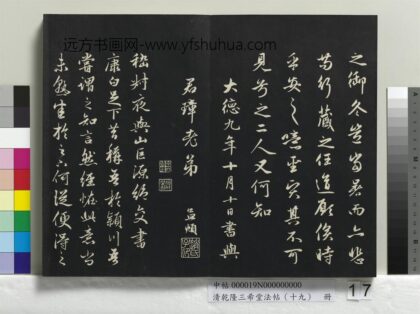 之御冬豈當暑而亦悲
苟行藏之任道顧俟時
安之噫聖賢其不可
見兮之二人又何知
大德九年十月十日書與
君璋老弟 孟頫
嵇叔夜與山巨源絕交書
康白足下昔稱吾於潁川吾
嘗謂之知言然經怪此意尚
未熟悉於足下何從便得之
远方书画网-www.yfshuhua.com
中帖 000019N000000000
清乾隆三希堂法帖（十九） 冊
17